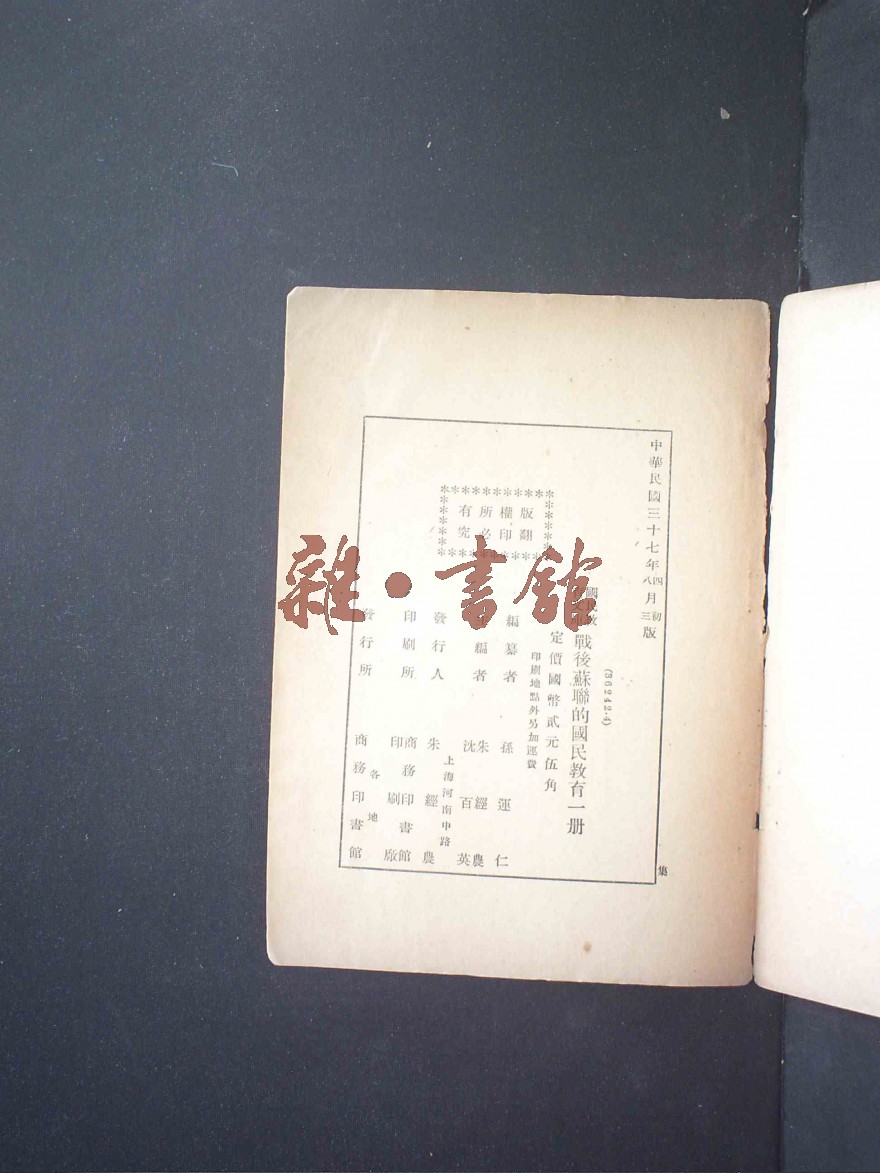 中華民國三十七年四月初版
八 三
(36242·4)
戰後蘇聯的國民教育一册
定價國幣貳元伍角
印刷地點外另加運費
版權所有
翻印必究
編纂者 孫運仁
編者 朱經農
沈百英
上海河南中路
發行人 朱經農
印刷所 商務印書館
印刷廠
各地
發行所 商務印書館
集
雜·書館